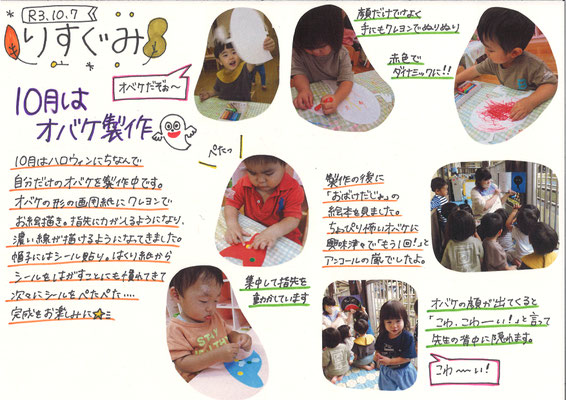 R3.10.7
りすぐみ
10月は
オバケ製作
オバケだぞぉ〜
顔だけでなく
手にもクレヨンでぬりぬり
赤色で
ダイナミックに!!
10月はハロウィンにちなんで
自分だけのオバケを製作中です。
オバケの形の画用紙にクレヨンで
お絵描き。指先に力が入るようになり、
濃い線が描けるようになってきました。
帽子にはシール貼り。はくり紙から
シールをはがすことにも慣れてきて
次々にシールをぺたぺた....
完成をお楽しみに
ぺたっ
集中して指先を
動かしています
製作の後に
「おばけだじょ」の
絵本を見ました。
ちょっぴり怖いオバケに
興味津々で「もう1回!」と
アンコールの嵐でしたよ。
オバケの顔が出てくると
「こわ、こわーい!」と言って
先生の背中に隠れます。
こわ〜い!